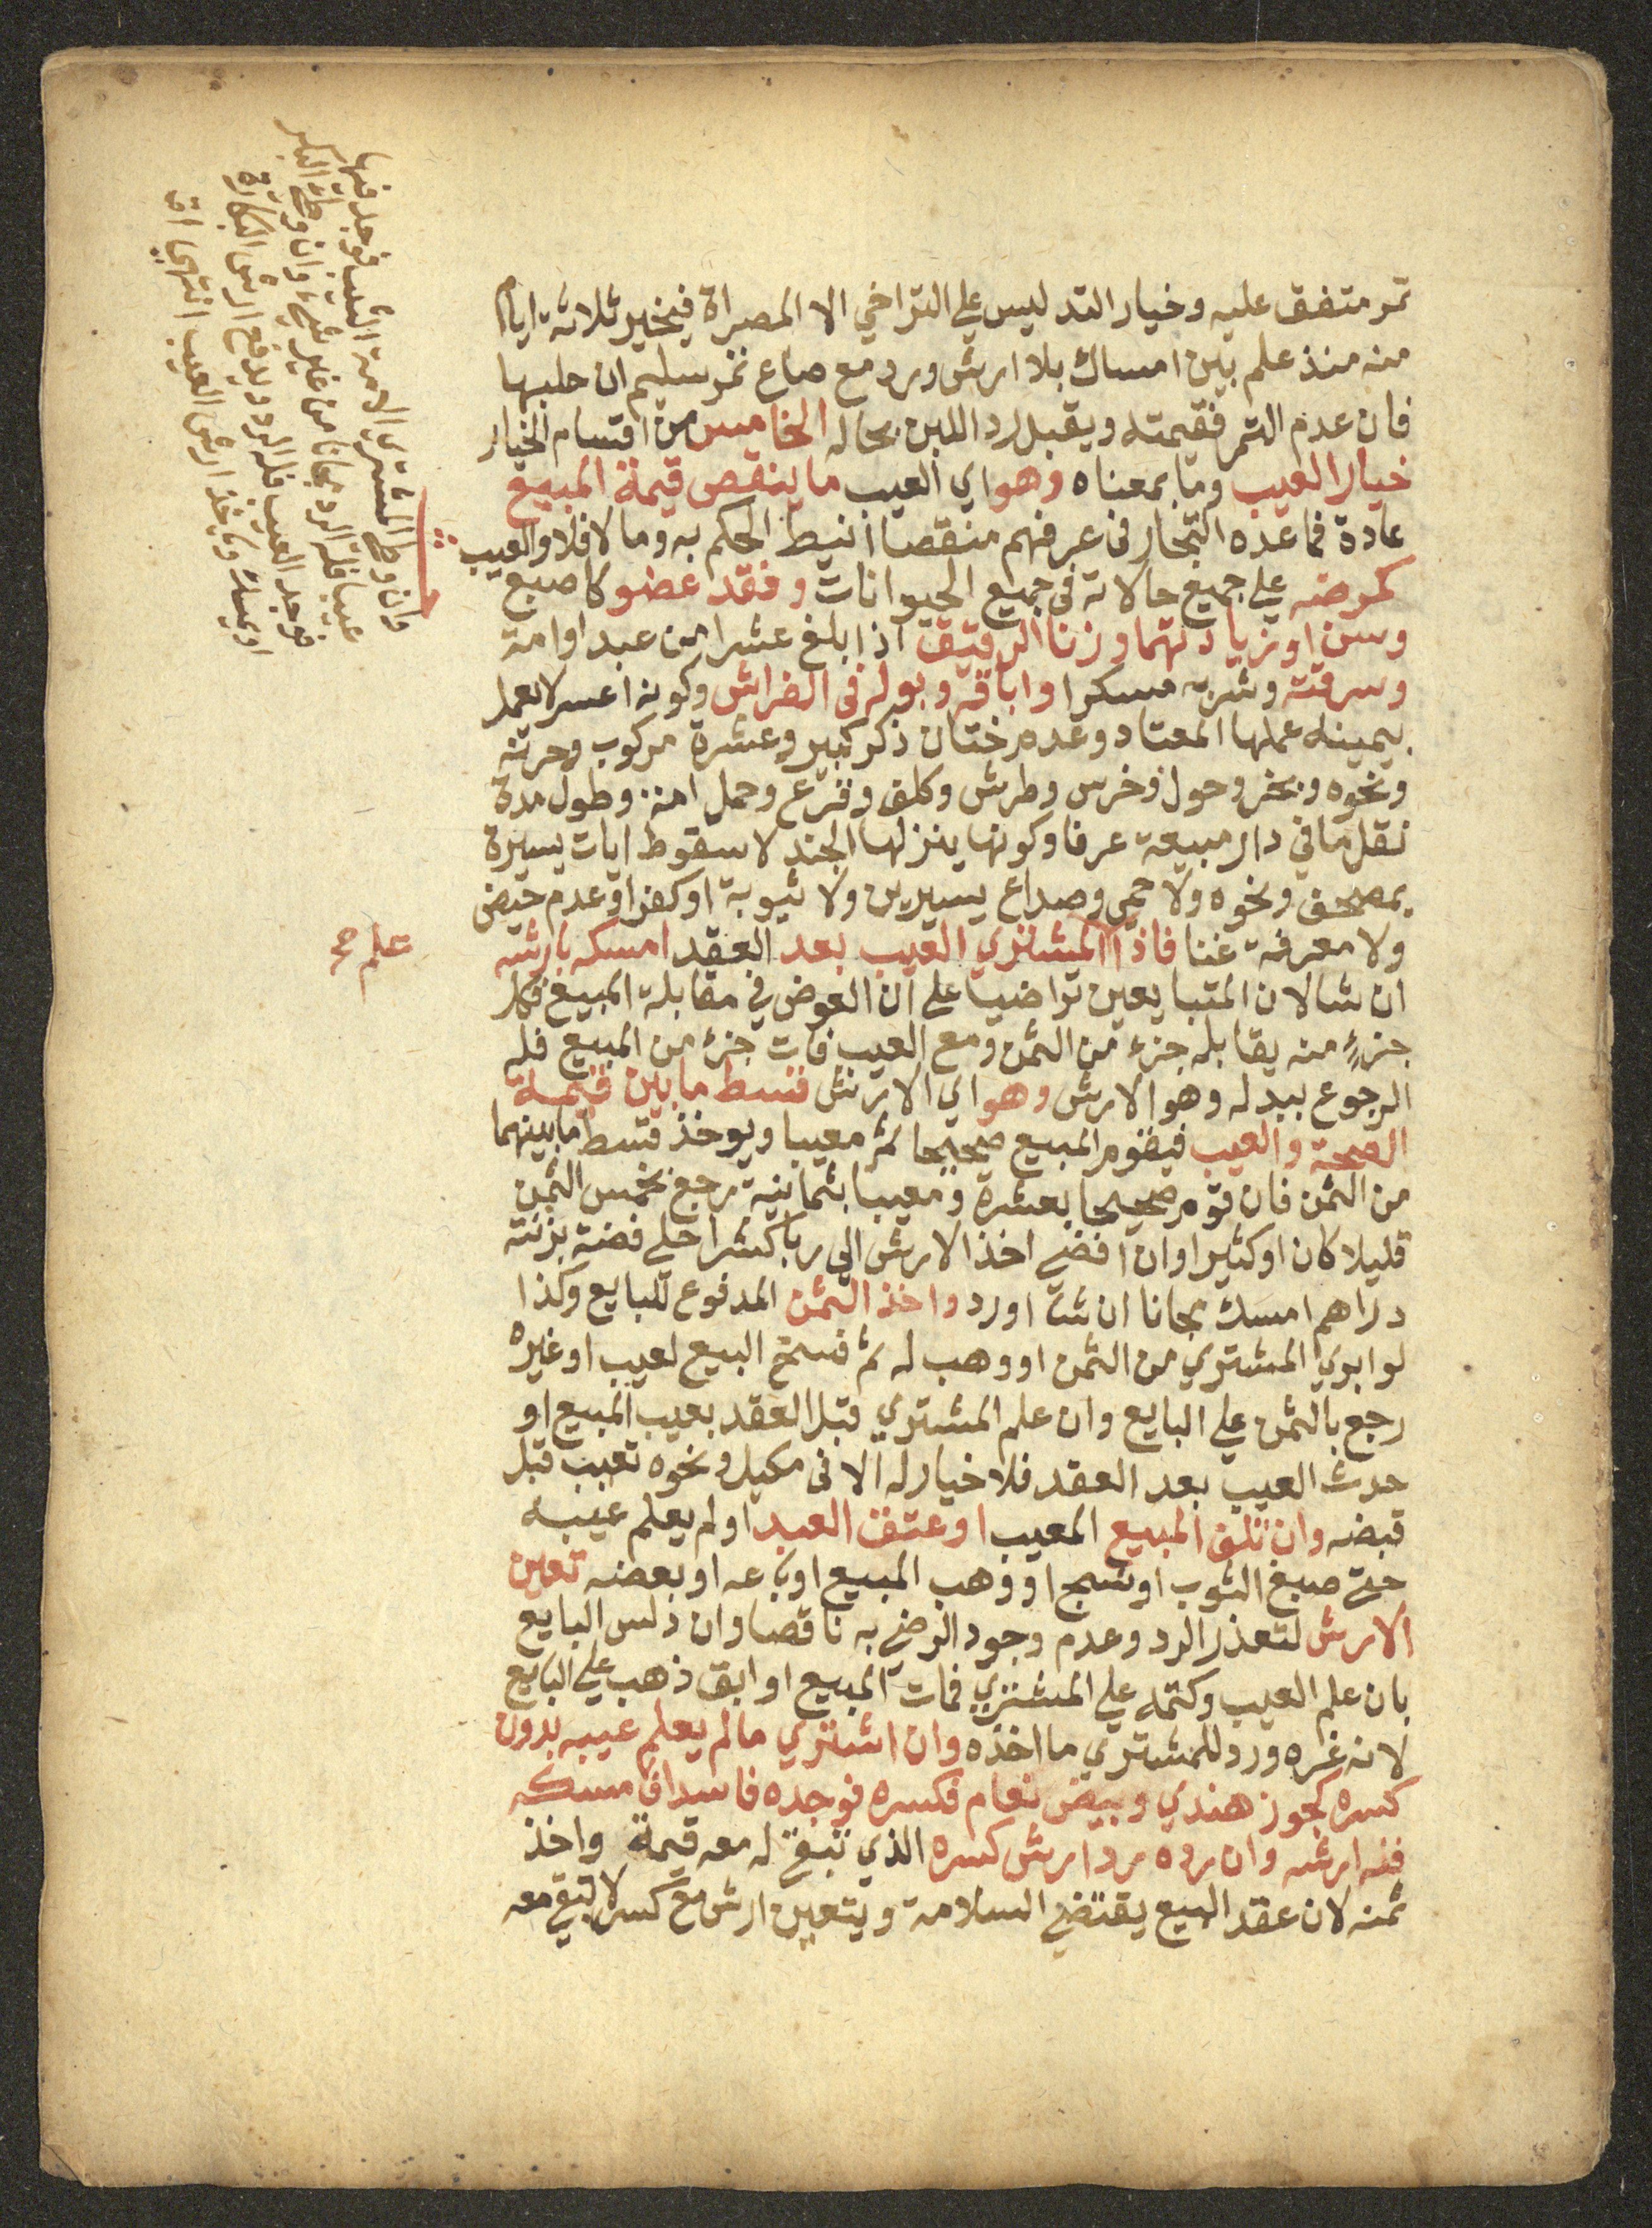 تمر متفق عليه وخيار التدليس على التراخي الا المصراة فيخير ثلاثة ايام
منه منذ علم بين امساك بلا ارش ورد مع صاع تمر سليم ان حلبها
فان عدم التمر فقيمته ويقبل رد اللبن بحاله الخامس من اقسام الخيار
خيار العيب وما بمعناه وهو اي العيب ما ينقص قيمة المبيع
عادة فما عده التجار في عرفهم منقصا انيط الحكم به وما لا فلا والعيب
كمرضه على جميع حالاته في جميع الحيوانات وفقد عضو كاصبع
وسن او زيادتهما وزنا الرقيق اذا بلغ عشرا من عبد او امة
وسرقته وشربه مسكرا واباقه وبوله في الفراش وكونه اعسر لا يعمل
بيمينه عملها المعتاد وعدم ختان ذكر كبير وعشرة مركوب وحرنه
ونحوه وبخر وحول وخرس وطرش وكلف وقرع وحمل امة وطول مدة
نقل ما في دار مبيعة عرفا وكونها ينزلها الجند لا سقوط ايات يسيرة
بمصحف ونحوه ولا حمى وصداع يسيرين ولا ثيوبة او كفر او عدم حيض
ولا معرفة غنا فاذا المشتري العيب بعد العقد امسكه بارشه
علم صح
ان شا لان المتبايعين تراضيا على ان العوض في مقابلة المبيع فكل
جزء منه يقابله جزء من الثمن ومع العيب فات جزء من المبيع فله
الرجوع ببدله وهو الارش وهو اي الارش قسط ما بين قيمة
الصحة والعيب فيقوم المبيع صحيحا ثم معيبا ويوخذ قسط ما بينهما
من الثمن فان قوم صحيحا بعشرة ومعيبا بثمانية رجع بخمس الثمن
قليلا كان او كثيرا وان افضى اخذ الارش الى ربا كشرا حلي فضة بزنته
دراهم امسك مجانا ان شا او رد واخذ الثمن المدفوع للبايع وكذا
لو ابري المشتري من الثمن او وهب له ثم فسخ البيع لعيب او غيره
رجع بالثمن على البايع وان علم المشتري قبل العقد بعيب المبيع او
حدث العيب بعد العقد فلا خيار له الا في مكيل ونحوه تعيب قبل
قبضه وان تلف المبيع المعيب او عتق العبد او لم يعلم عيبه
حتى صبغ الثوب او نسج او وهب المبيع او باعه او بعضه تعين
الارش لتعذر الرد وعدم وجود الرضى به ناقصا وان دلس البايع
بان علم العيب وكتمه على المشتري فمات المبيع او ابق ذهب على البايع
لانه غره ورد للمشتري ما اخذه وان اشترى مالم يعلم عيبه بدون
كسره كجوز هندي وبيض نعام فكسره فوجده فاسدا فامسكه
فله ارشه وان رده رد ارش كسره الذي تبقى له معه قيمة واخذ
ثمنه لان عقد البيع يقتضي السلامة ويتعين ارش مع كسر لا تبقى معه
وان وطي المشتري الامة الثيب فوجد فيها
عيبا فله الرد مجانا من غير شيء وان وطي البكر
فوجد العيب فله الرد ويدفع ارش البكارة
او يمسك وياخذ ارش العيب انتهى